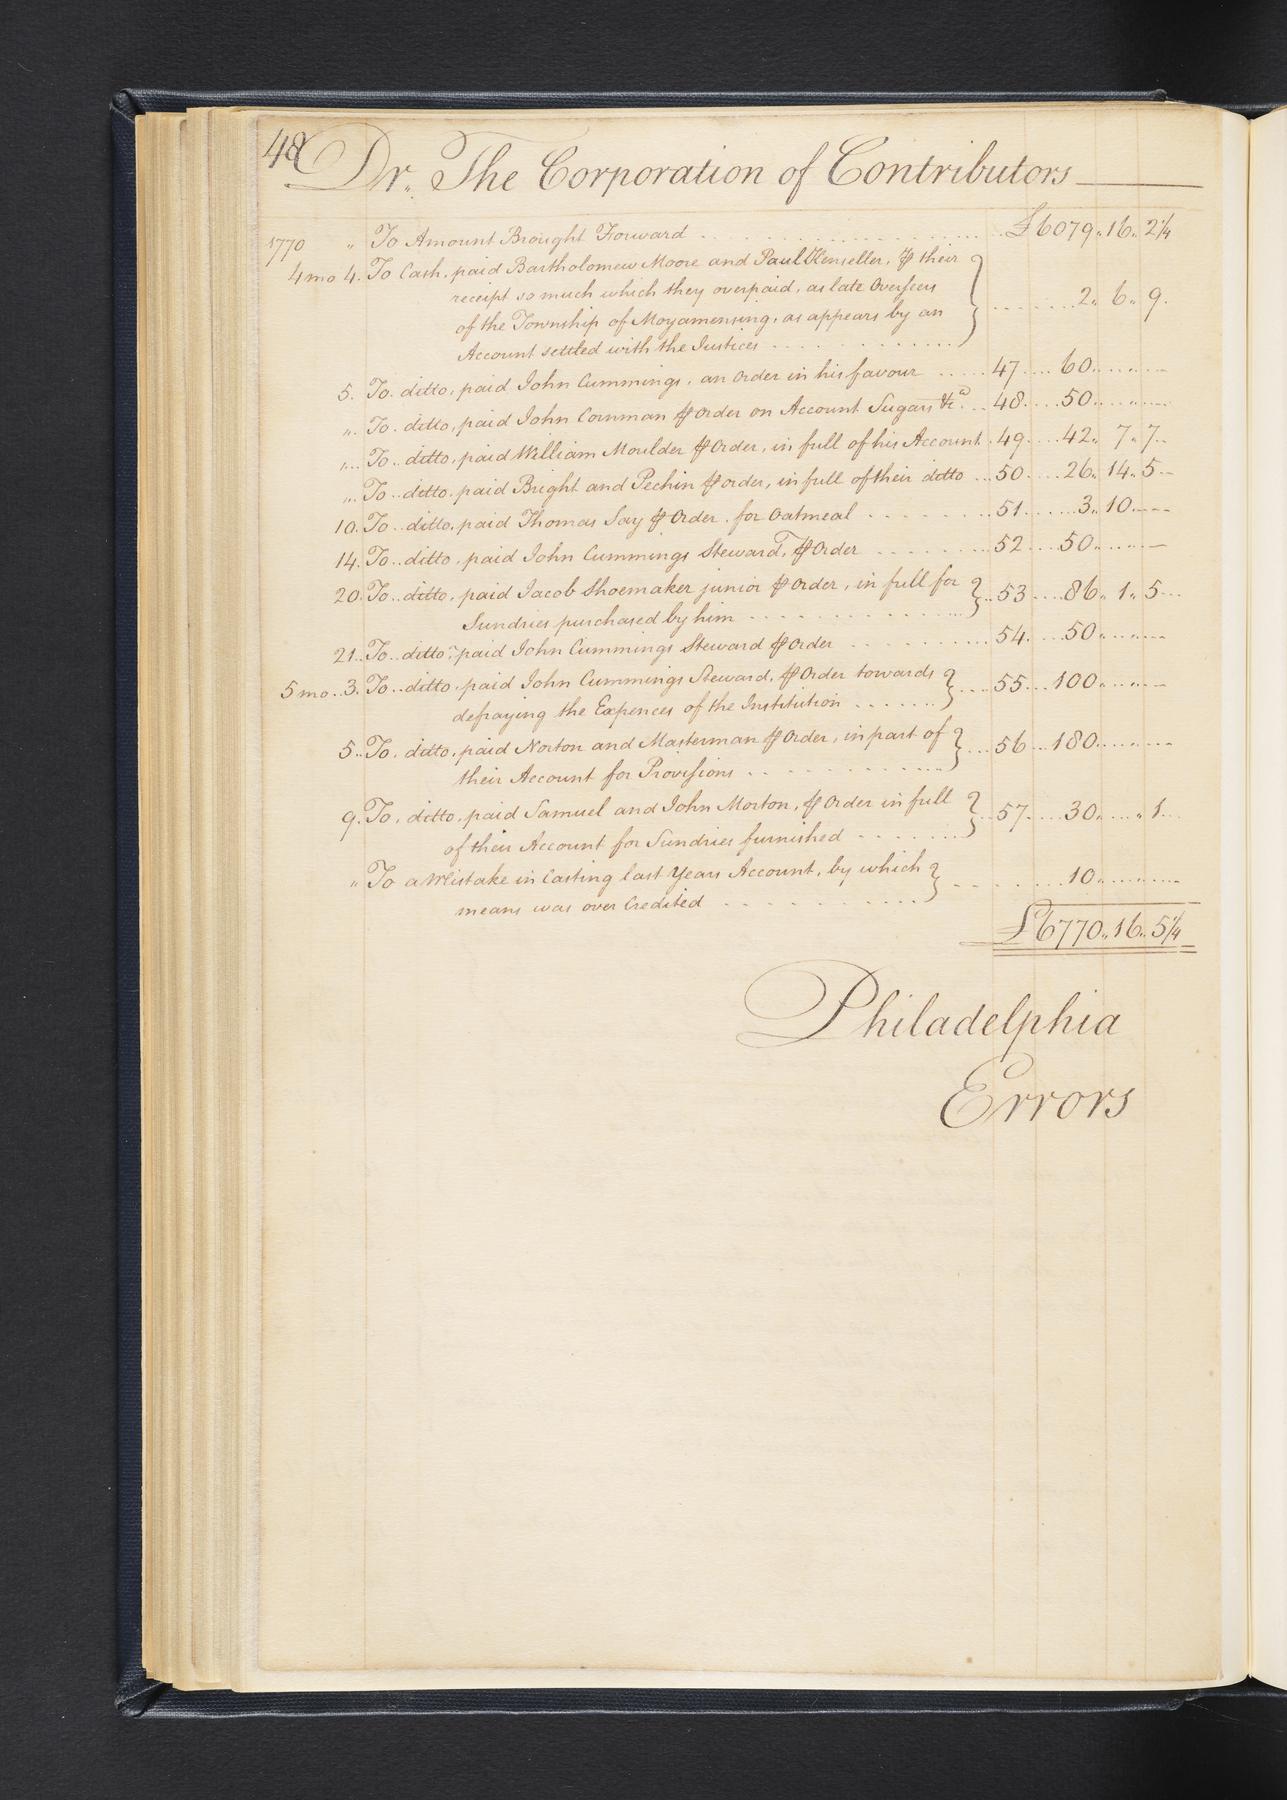 48
Dr. The Corporation of Contributors
1770 " To Amount Brought Forward . . . £6079..16..2 1/4
4 mo 4. To Cash, paid Bartholomew Moore and Paul ⅌ their
receipt so much which they overpaid, as late Overseers
of the Township of Moyamensing, as appears by an
Account settled with the Justices . . . 2..6..9.
5. To ditto, paid John Cummings, an Order in his favour . . . 47 . . . 60 . . .
" To ditto, paid John Cornman ⅌ Order on Account Sugars &ca . . . 48 . . . 50 . . .
" To ditto, paid William Moulder ⅌ Order, in full of his Account . 49 . . . 42..7..7
" To ditto, paid Bright and Pechin ⅌ order, in full of their ditto . . . 50 . . . 26..14..5
10. To ditto, paid Thomas Say ⅌ Order, for Oatmeal . . . 51 . . . 3..10..—
14. To ditto, paid John Cummings Steward, ⅌ Order . . . 52 . . . 50 . . . —
20. To ditto, paid Jacob Shoemaker junior ⅌ Order, in full for
Sundries purchased by him . . . 53 . . . 86..1..5
21. To ditto, paid John Cummings Steward ⅌ Order . . . 54 . . . 50 . . . —
5 mo 3. To ditto, paid John Cummings Steward, ⅌ Order towards
defraying the Expences of the Institution . . . 55 . . . 100 . . . —
5. To ditto, paid Norton and Masterman ⅌ Order, in part of
their Account for Provisions . . . 56 . . . 180 . . . —
9. To ditto, paid Samuel and John Morton, ⅌ Order in full
of their Account for Sundries furnished . . . 57 . . . 30 . . " 1
" To a Mistake in Casting last Years Account, by which
means was over Credited . . . 10 . . . —
£6770..16..5 1/4
Philadelphia
Errors